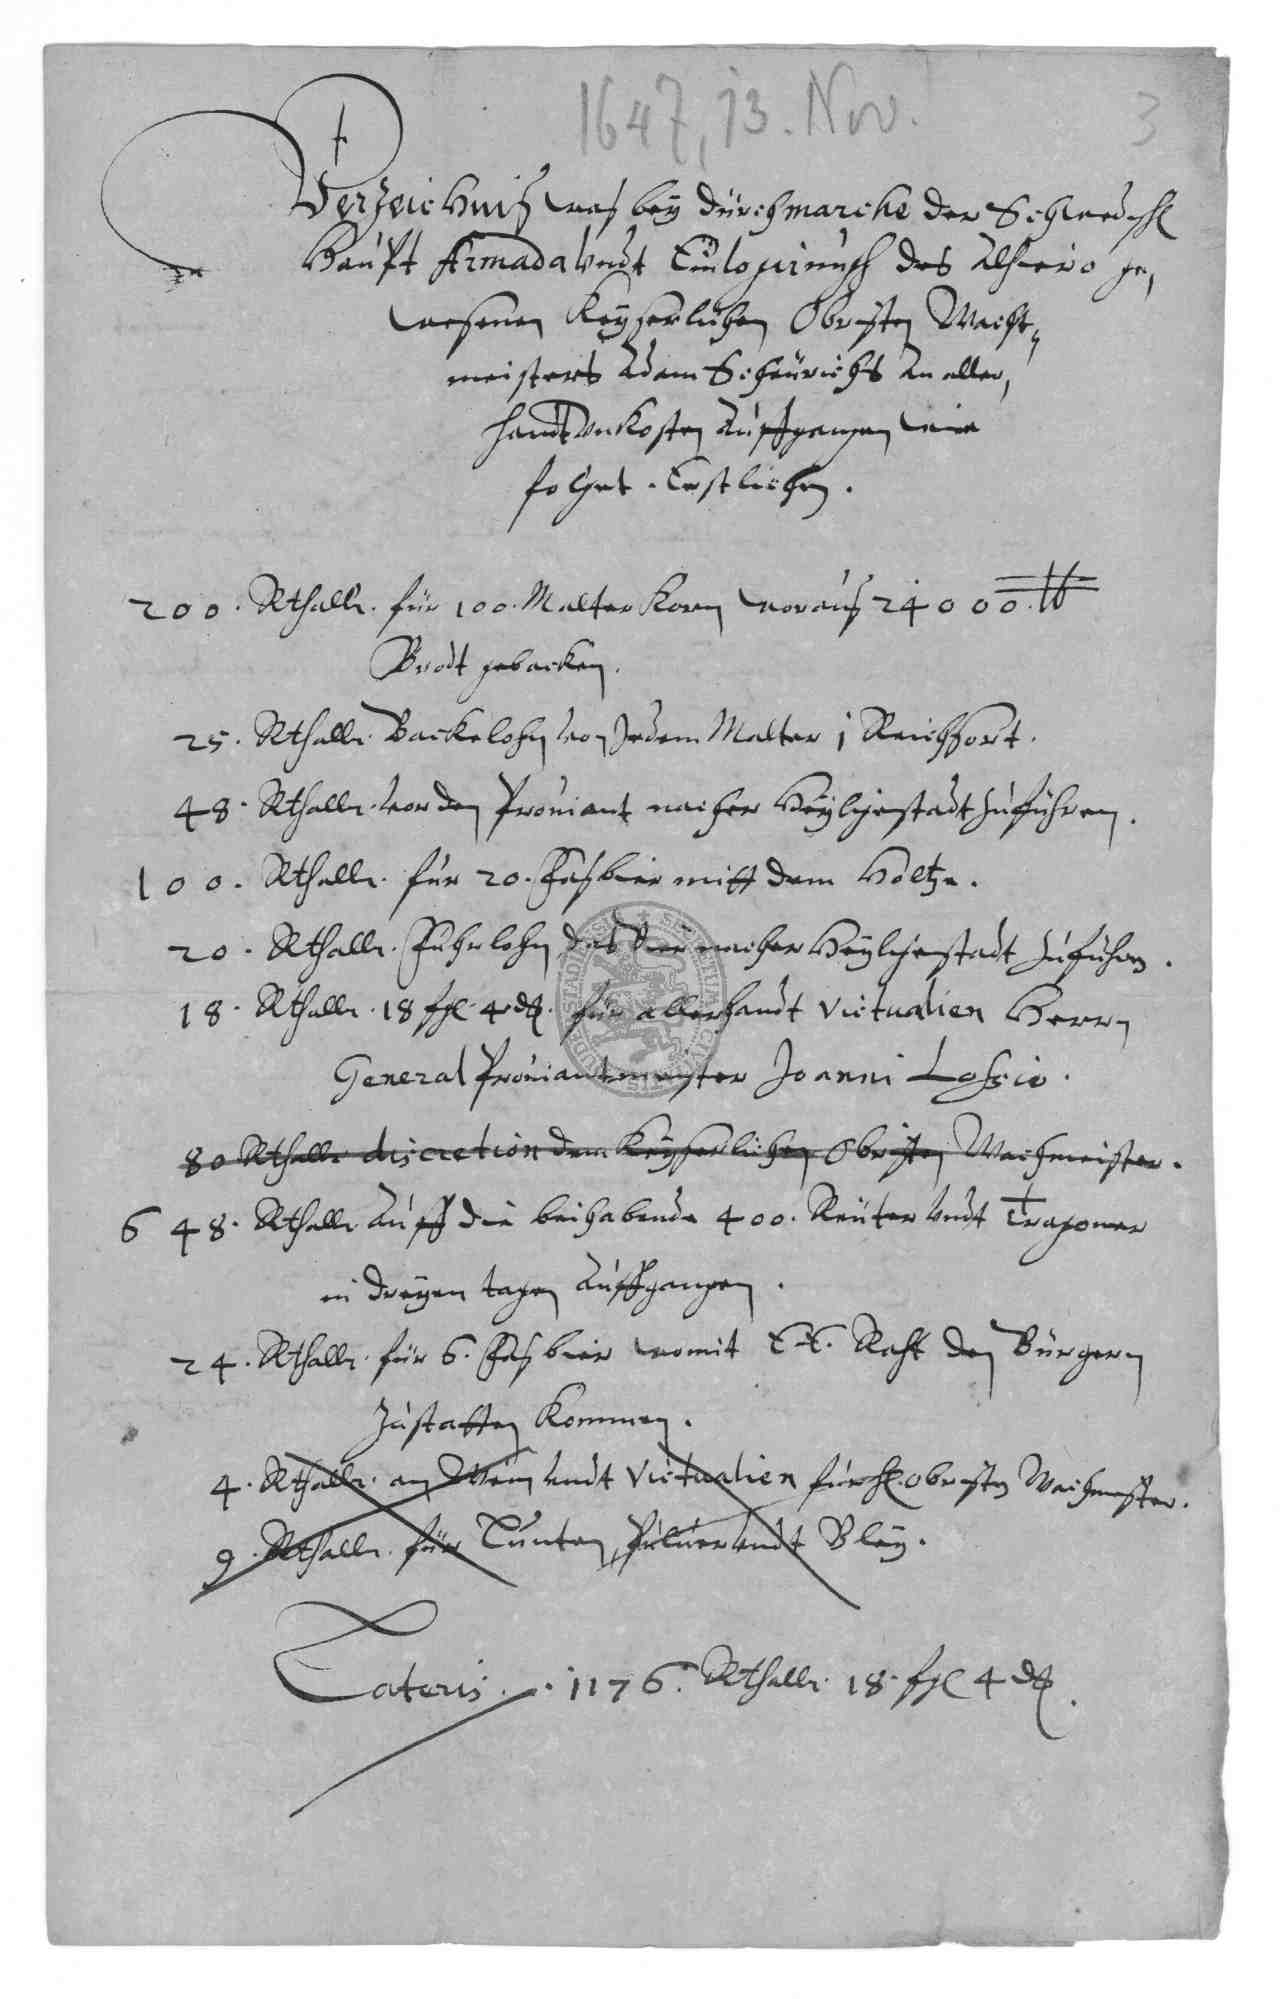 1647, 13. Nov.
3
Verzeichnis was bey dürchmarche der Schwedischl
Haupt Armada vndt Einlogirungh des alhiero ge,
wesenen Keyserlichen Obristen Wacht,
meisters Adam Scheurichs an aller,
handt vnkosten Auffgangen wie
folget. Erstlichen.
200. Rthall. für 100. Malter Korn woraus 24000. lb
Brodt gebacken.
25. Rthall. Backelohn von Jedem Malter 1 Reichsort.
48. Rthall. vor den Proviant nacher Heyligenstadt zuführen.
100. Rthall. für 20. Fas bier mitt dem Holtze.
20. Rthall. Fuhrlohn das Bier nacher Heyligenstadt zuführen.
18. Rthall. 18 sgl. 4 d. für allerhandt victualien Herrn
General Proviantmeister Joanni Lossio.
80 Rthall. discretion dem Keyserlichen Obristen Wachmeister.
648. Rthall. Auff die beihabende 400. Reuter vndt Tragoner
in dreyen tagen Auffgangen.
24. Rthall. für 6. Fas bier womit E. E. Raht den Bürgern
zustatten Kommen.
4. Rthall. an Wein vndt victualien für H. Obristen Wachmeister.
9. Rthall. für Lunten, Pulver vndt Bley.
Lateris. 1176. Rthall. 18. sgl 4 d.